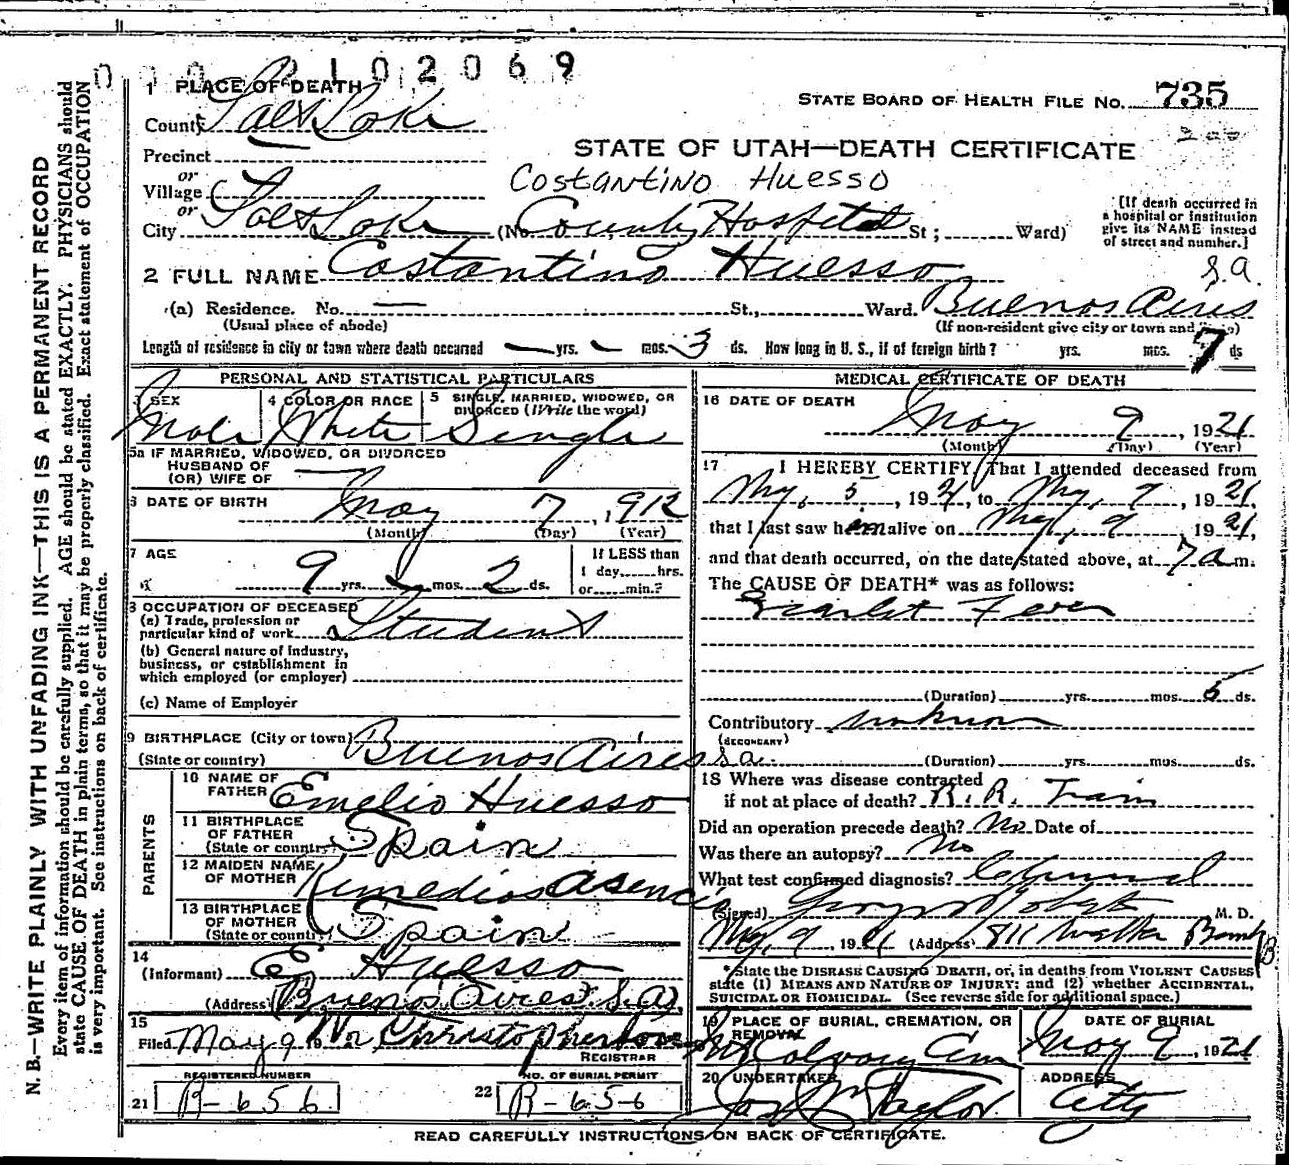 0002102069
1 PLACE OF DEATH
STATE BOARD OF HEALTH FILE NO. 735
County Salt Lake
Precinct
STATE OF UTAH—DEATH CERTIFICATE
or
Village
Costantino Huesso
or
City Salt Lake (No. County Hospital St ; Ward)
[If death occurred in
a hospital or institution
give its NAME instead
of street and number.]
2 FULL NAME Costantino Huesso
S.A
(a) Residence. No. — St., Ward. Buenos Aires
(Usual place of abode) (If non-resident give city or town and
Length of residence in city or town where death occurred — yrs. — mos. 3 ds. How long in U. S., if of foreign birth? yrs. mos. 7 ds
PERSONAL AND STATISTICAL PARTICULARS
3 SEX 4 COLOR OR RACE 5 SINGLE, MARRIED, WIDOWED, OR
DIVORCED (Write the word)
Male White Single
5a IF MARRIED, WIDOWED, OR DIVORCED
HUSBAND OF
(OR) WIFE OF —
6 DATE OF BIRTH May 7, 1912
(Month) (Day) (Year)
7 AGE 9 yrs. — mos. 2 ds.
If LESS than
1 day hrs.
or min.?
8 OCCUPATION OF DECEASED
(a) Trade, profession or
particular kind of work Student
(b) General nature of industry,
business, or establishment in
which employed (or employer)
(c) Name of Employer
9 BIRTHPLACE (City or town)
(State or country) Buenos Aires S.A.
PARENTS
10 NAME OF
FATHER Emelio Huesso
11 BIRTHPLACE
OF FATHER
(State or country) Spain
12 MAIDEN NAME
OF MOTHER Remedios Asencio
13 BIRTHPLACE
OF MOTHER
(State or country) Spain
14
(Informant) E. Huesso
(Address) (Buenos Aires. S.A)
15
Filed May 9 19 Christopherson
REGISTRAR
REGISTERED NUMBER NO. OF BURIAL PERMIT
21 R-656 22 R-656
MEDICAL CERTIFICATE OF DEATH
16 DATE OF DEATH
May 9, 1921
(Month) (Day) (Year)
17 I HEREBY CERTIFY, That I attended deceased from
May, 5, 1921, to May, 9, 1921,
that I last saw him alive on May, 9 1921,
and that death occurred, on the date stated above, at 7 a m.
The CAUSE OF DEATH* was as follows:
Scarlet Fever
(Duration) yrs. mos. 5 ds.
Contributory unknown
(SECONDARY)
(Duration) yrs. mos. ds.
18 Where was disease contracted
if not at place of death? R.R. Train
Did an operation precede death? No Date of
Was there an autopsy? No
What test confirmed diagnosis? Clinical
(Signed) M. D.
May 9, 1921 (Address) 811 Walker Bank B
*State the DISEASE CAUSING DEATH, or, in deaths from VIOLENT CAUSES
state (1) MEANS AND NATURE OF INJURY; and (2) whether ACCIDENTAL,
SUICIDAL OR HOMICIDAL. (See reverse side for additional space.)
19 PLACE OF BURIAL, CREMATION, OR
REMOVAL DATE OF BURIAL
Mt Calvary Cem May 9, 1921
20 UNDERTAKER ADDRESS
Jas Taylor City
READ CAREFULLY INSTRUCTIONS ON BACK OF CERTIFICATE.
N. B.—WRITE PLAINLY WITH UNFADING INK—THIS IS A PERMANENT RECORD
Every item of information should be carefully supplied. AGE should be stated EXACTLY. PHYSICIANS should
state CAUSE OF DEATH in plain terms, so that it may be properly classified. Exact statement of OCCUPATION
is very important. See instructions on back of certificate.